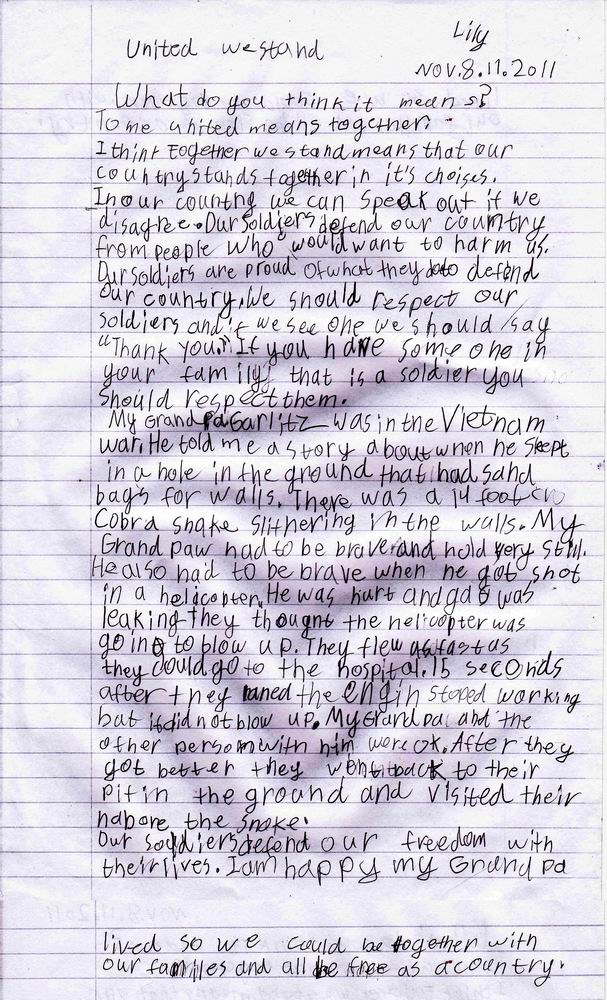 Lily
United we stand
Nov.8.11.2011
What do you think it means?
To me united means together.
I think Together we stand means that our
country stands together in it's choises.
In our country we can speak out if we
disagree. Our Soldiers defend our country
from people who would want to harm us.
Our soldiers are proud of what they do to defend
our country. We should respect our
soldiers and if we see one we should say
"Thank you." If you have some one in
your family that is a soldier you
should respect them.
My Grandpa Garlitz was in the Vietnam
war. He told me a story about when he slept
in a hole in the ground that had sand
bags for walls. There was a 14 foot
Cobra snake slithering in the walls. My
Grand paw had to be brave and hold very still.
He also had to be brave when he got shot
in a helicopter. He was hurt and gas was
leaking they thought the helicopter was
going to blow up. They flew as fast as
they could go to the hospital. 15 seconds
after they laned the engin stoped working
but it did not blow up. My Grand pa and the
other person with him were ok. After they
got better they went back to their
pit in the ground and visited their
nabore the snake.
Our soldiers defend our freedom with
their lives. I am happy my Grand pa
lived so we could be together with
our families and all be free as a country.